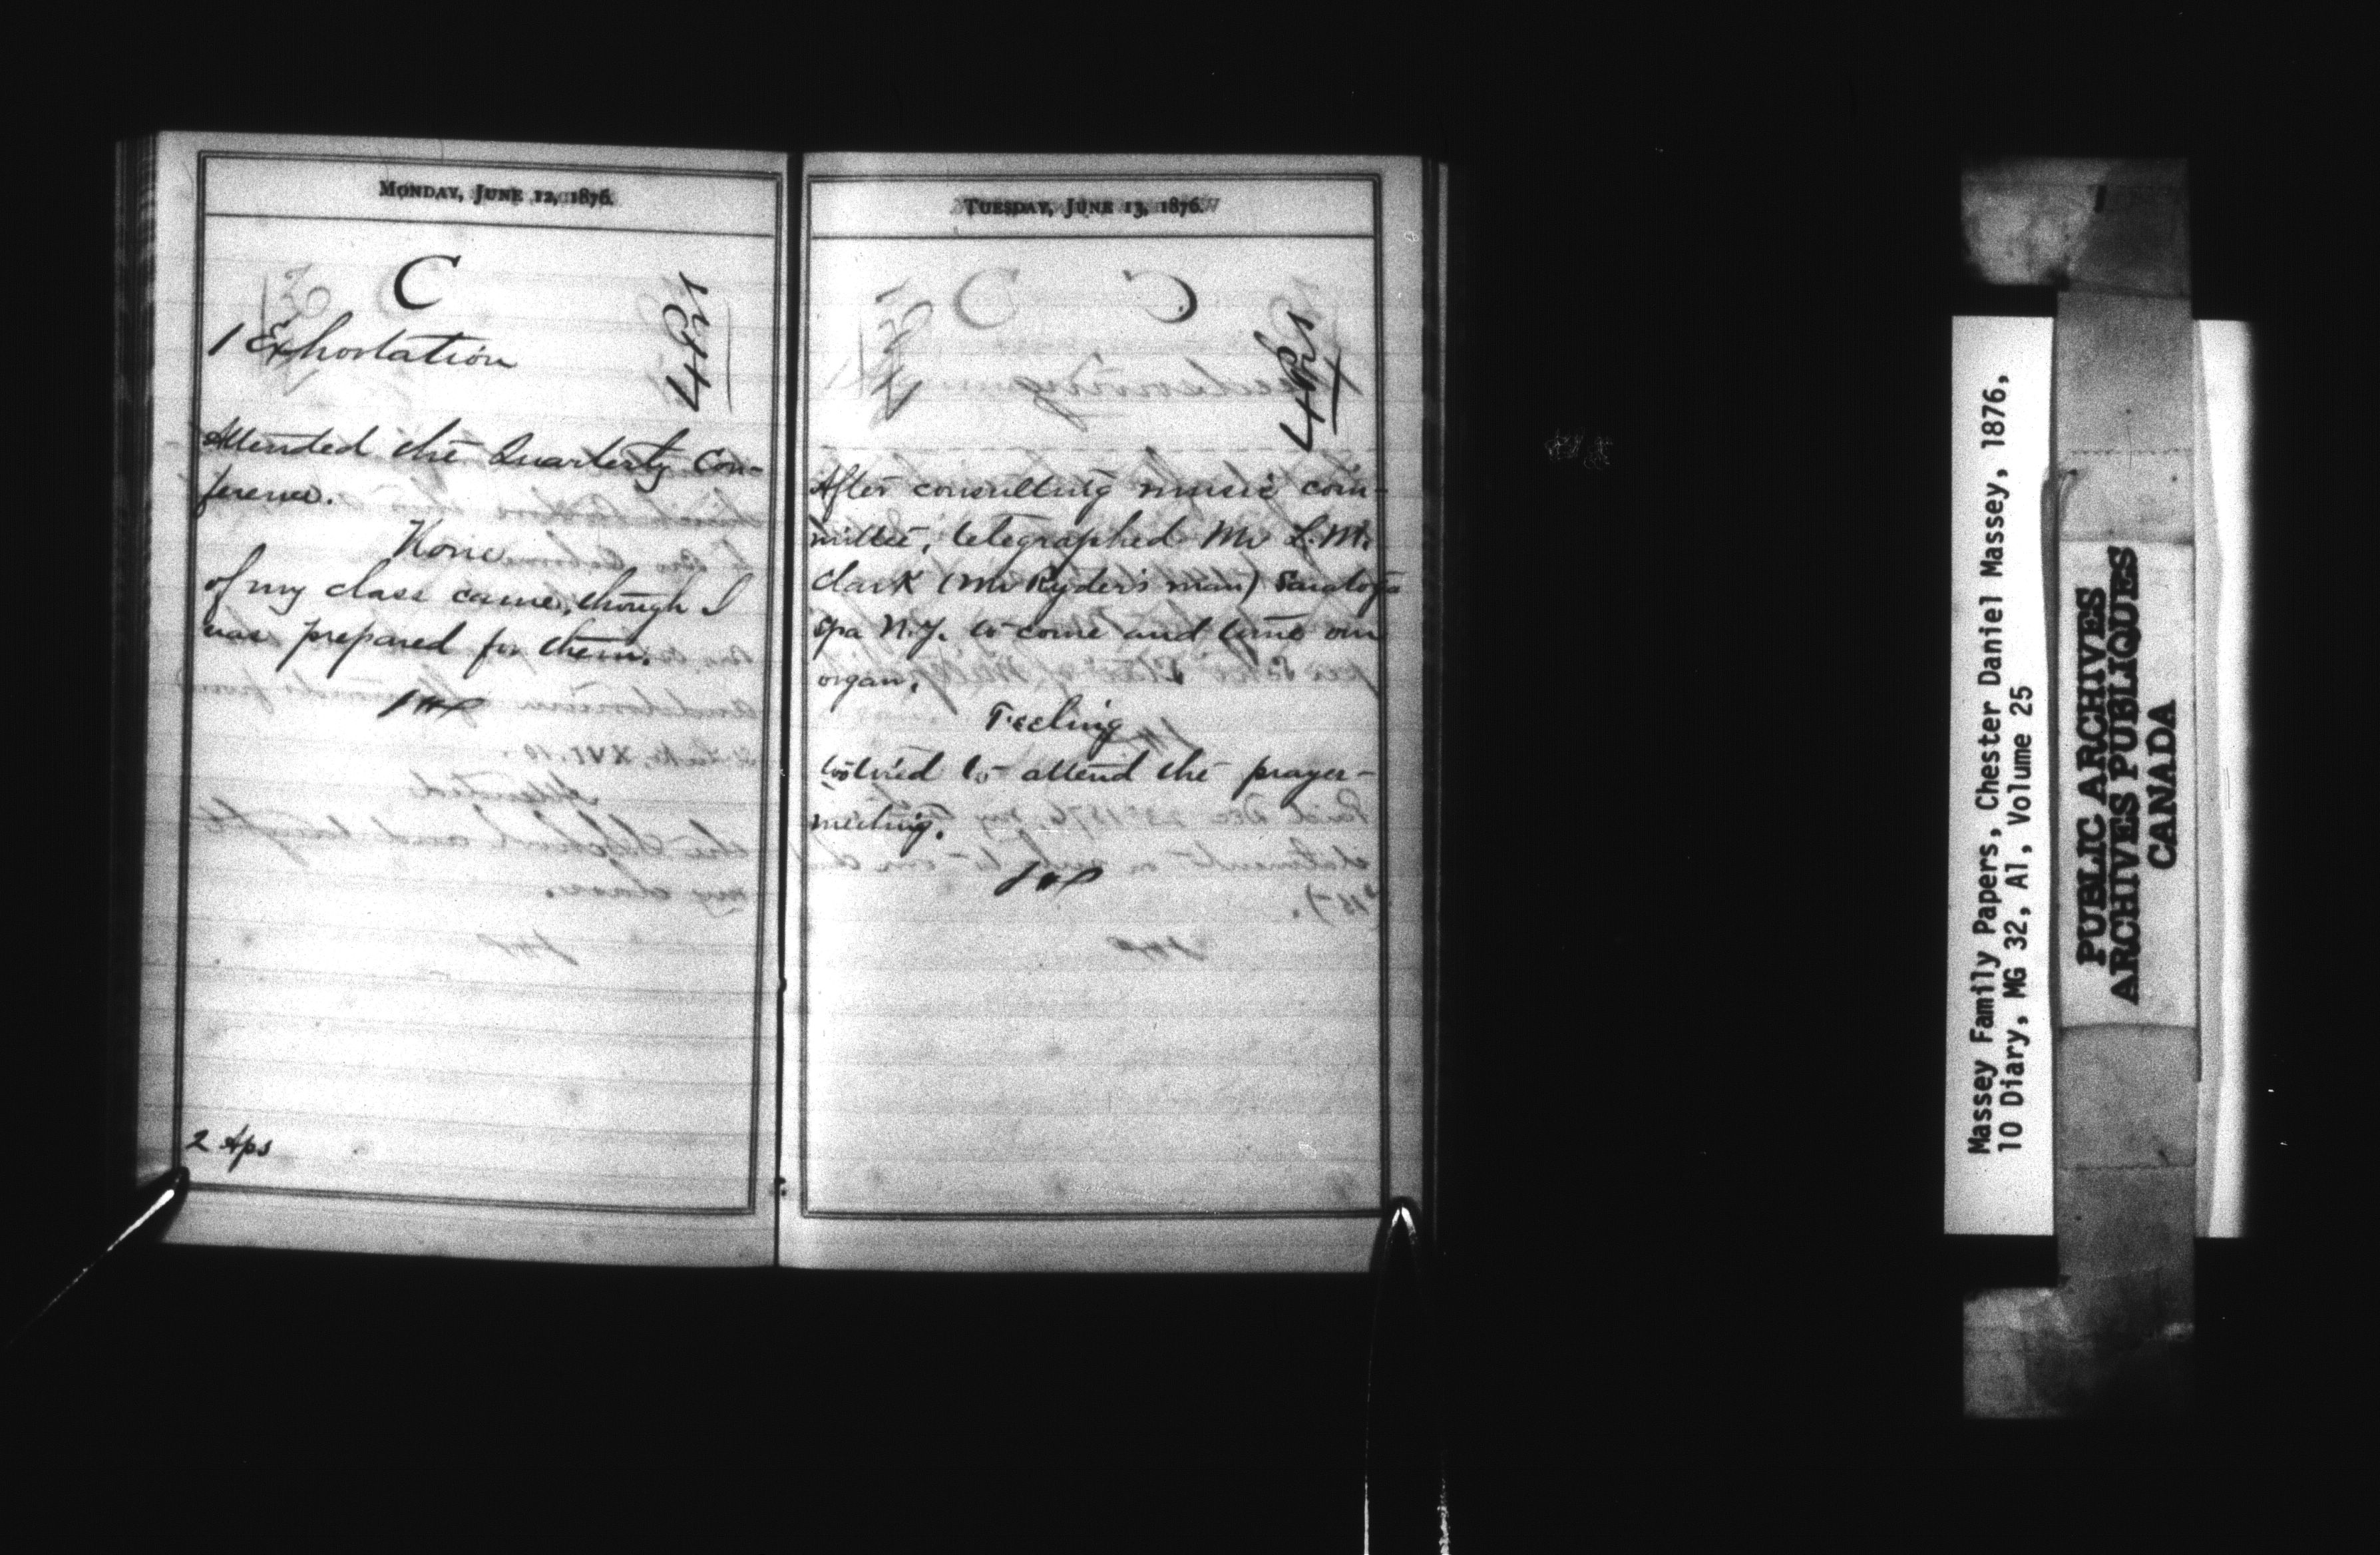 MONDAY, JUNE 12, 1876.
C
4 Prs
1 Exhortation
Attended the Quarterly Con-
ference.
None
of my class came, though I
was prepared for them.
2 Aps
TUESDAY, JUNE 13, 1876.
C
4 Prs
After consulting music com-
mittee, telegraphed Mr L. M.
Clark (Mr Ryder's man) Saratoga
Spa N.Y. to come and tune our
organ.
Feeling
too tired to attend the prayer-
meeting.
Massey Family Papers, Chester Daniel Massey, 1876,
10 Diary, MG 32, A1, Volume 25
PUBLIC ARCHIVES
ARCHIVES PUBLIQUES
CANADA